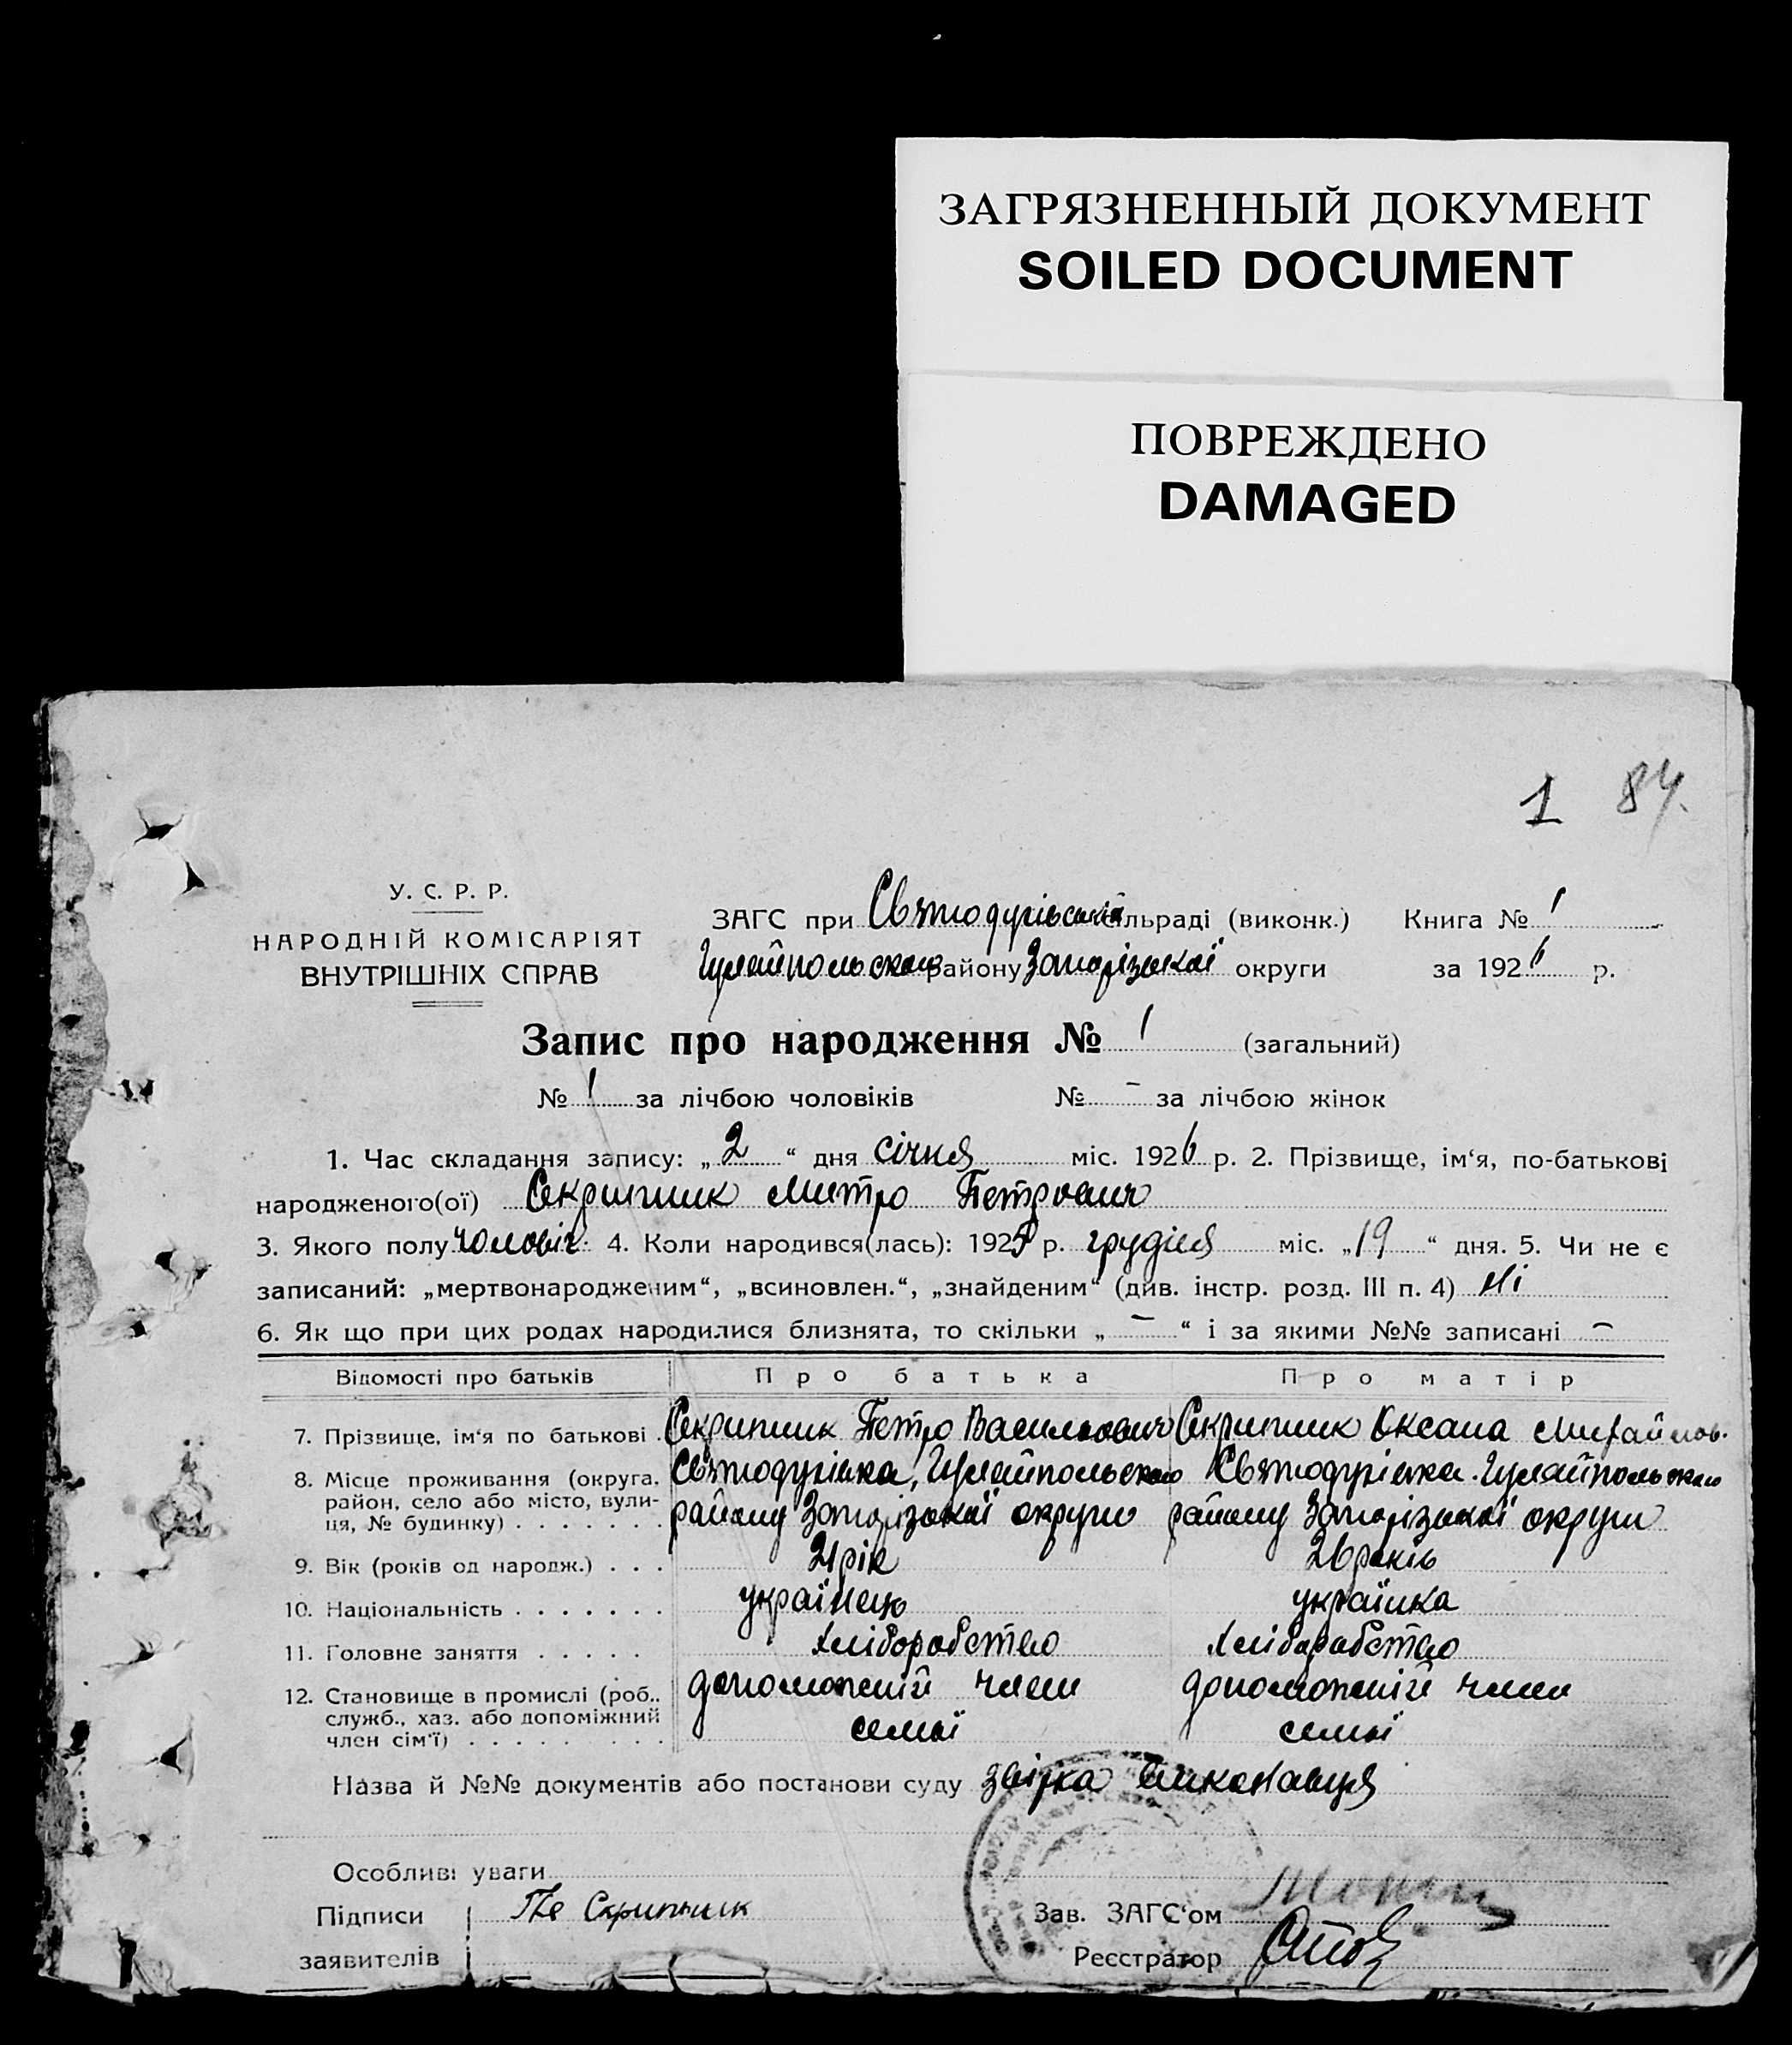 ЗАГРЯЗНЕННЫЙ ДОКУМЕНТ
SOILED DOCUMENT
ПОВРЕЖДЕНО
DAMAGED
1 84.
У. С. Р. Р.
НАРОДНІЙ КОМІСАРІЯТ
ВНУТРІШНІХ СПРАВ
ЗАГС при Святодухівській сільраді (виконк.) Книга № 1
Гуляйпольского району Запорізької округи за 1926 р.
Запис про народження № 1 (загальний)
№ 1 за лічбою чоловіків № – за лічбою жінок
1. Час складання запису: „2“ дня січня міс. 1926 р. 2. Прізвище, ім‘я, по-батькові
народженого(ої) Скрипник Митро Петрович
3. Якого полу чоловіч. 4. Коли народився(лась): 1925 р. грудня міс. „19“ дня. 5. Чи не є
записаний: „мертвонародженим“, „всиновлен.“, „знайденим“ (див. інстр. розд. III п. 4) Ні
6. Як що при цих родах народилися близнята, то скільки „ – “ і за якими №№ записані –
Відомості про батьків Про батька Про матір
7. Прізвище, ім‘я по батькові Скрипник Петро Васильович Скрипник Оксана Михайлов.
8. Місце проживання (округа, район, село або місто, вулиця, № будинку) . . . . . . .
Святодухівка, Гуляйпольского Святодухівка. Гуляйпольского
району Запорізької округи району Запорізької округи
9. Вік (років од народж.) . . . 21 рік 26 років
10. Національність . . . . . . . українець українка
11. Головне заняття . . . . . хліборобство хліборобство
12. Становище в промислі (роб., служб., хаз. або допоміжний член сім‘ї) . . . . . . . .
допоможній член допоможній член
семьї семьї
Назва й №№ документів або постанови суду звірка виконавця
Особливі уваги
Підписи Пе Скрипник Зав. ЗАГС‘ом
заявителів Реєстратор